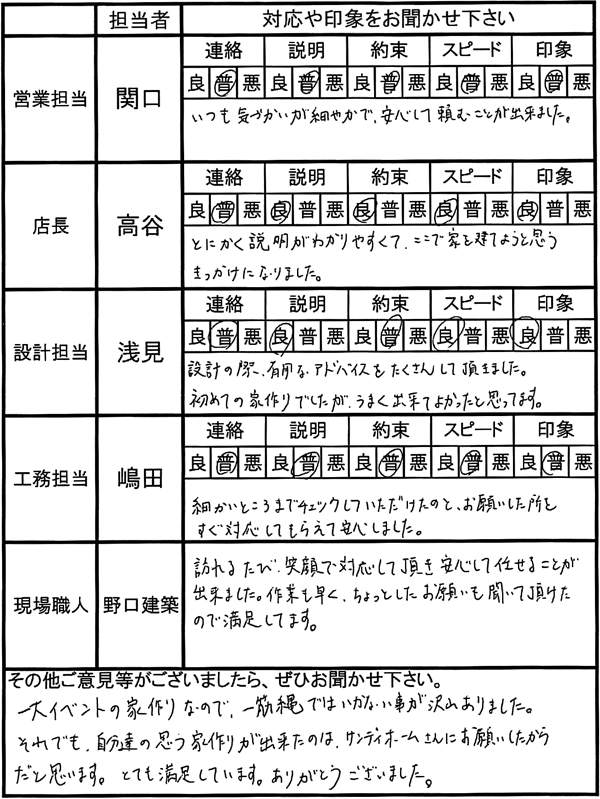 担当者 対応や印象をお聞かせ下さい
営業担当 関口
連絡 説明 約束 スピード 印象
良 普 悪 良 普 悪 良 普 悪 良 普 悪 良 普 悪
いつも気づかいが細やかで、安心して頼むことが出来ました。
店長 高谷
連絡 説明 約束 スピード 印象
良 普 悪 良 普 悪 良 普 悪 良 普 悪 良 普 悪
とにかく説明がわかりやすくて、ここで家を建てようと思う
きっかけになりました。
設計担当 浅見
連絡 説明 約束 スピード 印象
良 普 悪 良 普 悪 良 普 悪 良 普 悪 良 普 悪
設計の際、有用なアドバイスをたくさんして頂きました。
初めての家作りでしたが、うまく出来てよかったと思ってます。
工務担当 嶋田
連絡 説明 約束 スピード 印象
良 普 悪 良 普 悪 良 普 悪 良 普 悪 良 普 悪
細かいところまでチェックしていただけたのと、お願いした所を
すぐ対応してもらえて安心しました。
現場職人 野口建築
訪れるたび、笑顔で対応して頂き安心して任せることが
出来ました。作業も早く、ちょっとしたお願いも聞いて頂けた
ので満足してます。
その他ご意見等がございましたら、ぜひお聞かせ下さい。
一大イベントの家作りなので、一筋縄ではいかない事が沢山ありました。
それでも、自分達の思う家作りが出来たのは、サンディホームさんにお願いしたから
だと思います。とても満足しています。ありがとうございました。